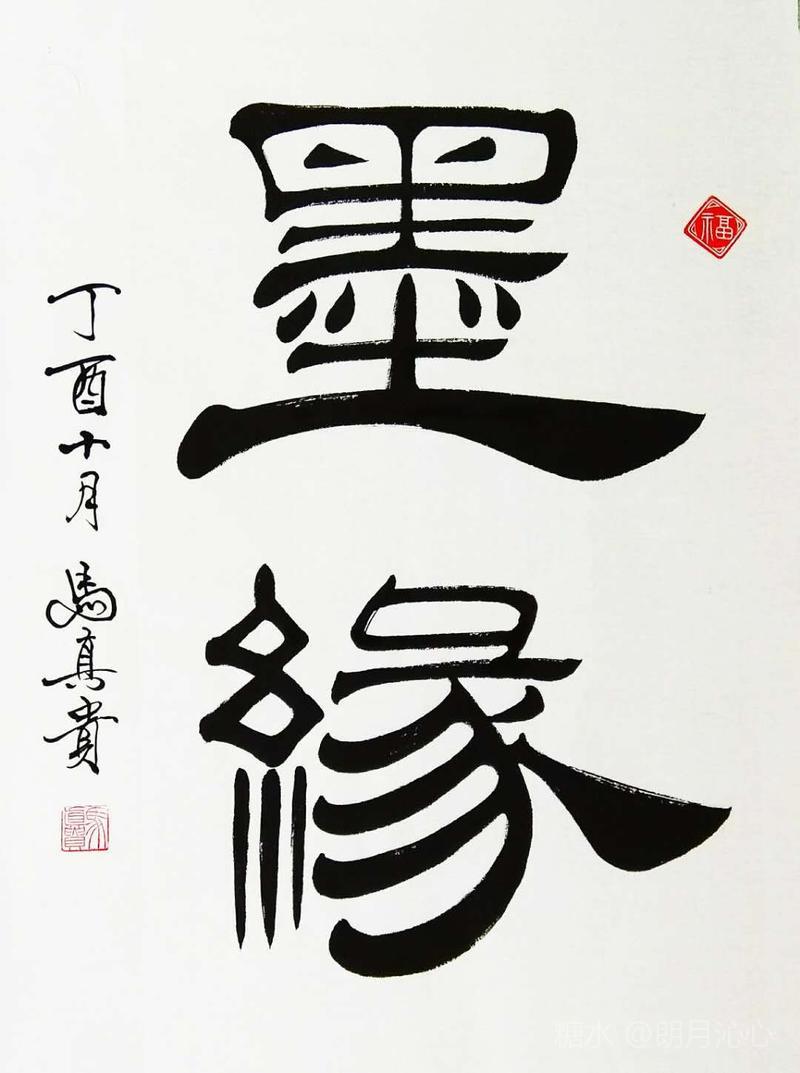 墨緣
福
丁酉十月 馬真貴
糖水 @朗月沁心